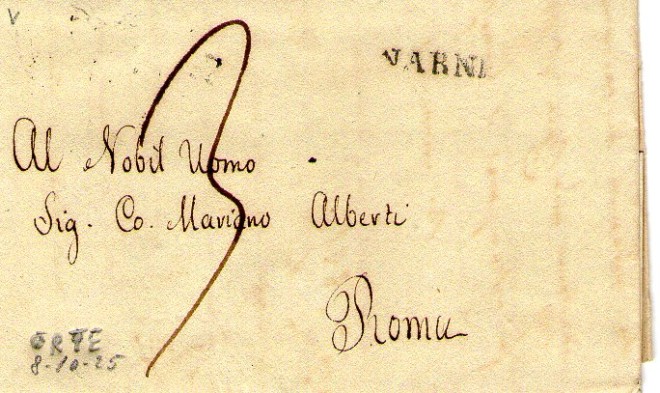 V
NARNI
3
Al Nobil Uomo
Sig. Co. Mariano Alberti
Roma
ORTE
8-10-25